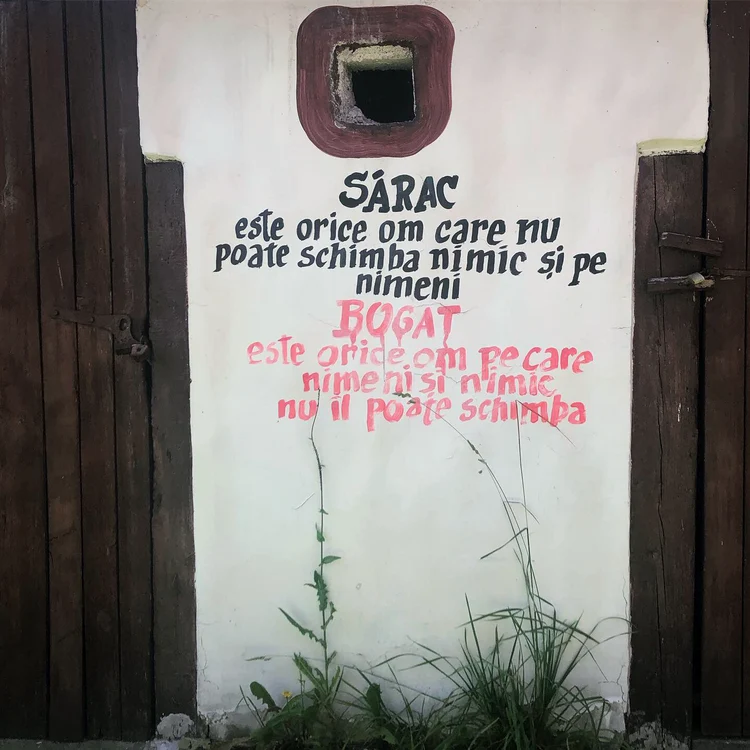 SĂRAC
este orice om care nu
poate schimba nimic și pe
nimeni
BOGAT
este orice om pe care
nimeni si nimic
nu îl poate schimba